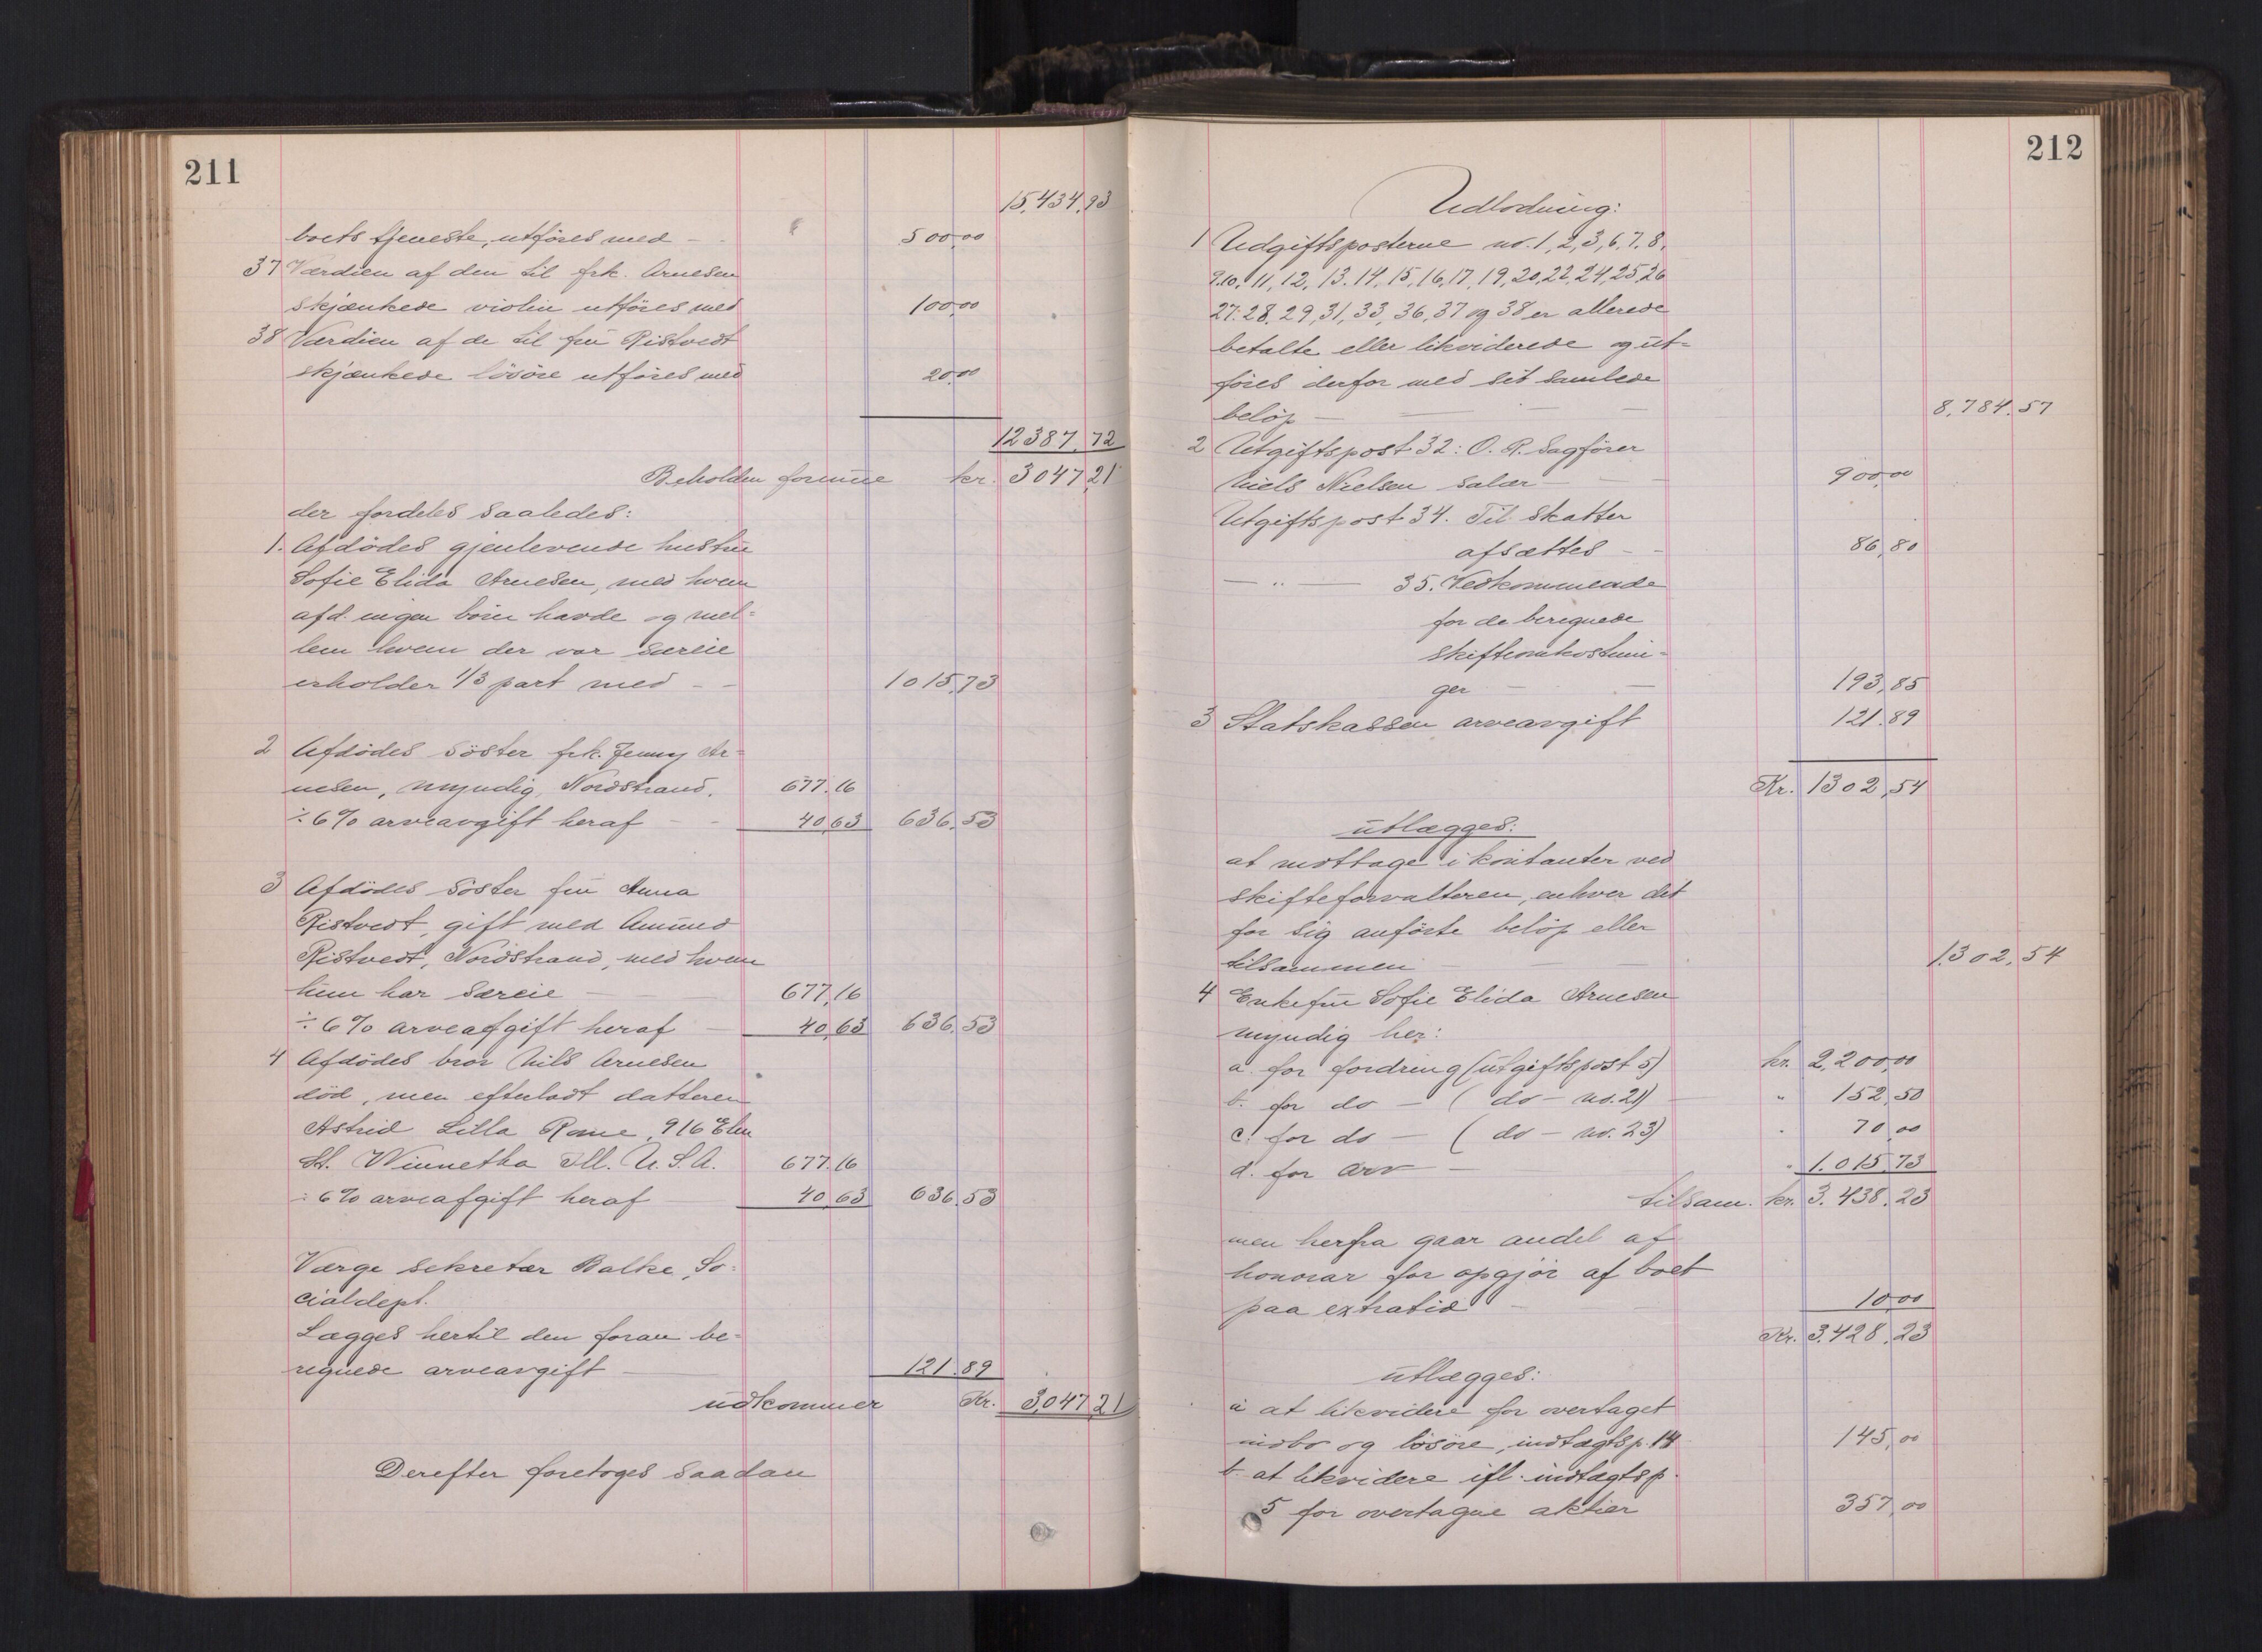 211
15,434,93
boets tjeneste, utföres med - - 500,00
37 Værdien af den til frk. Arnesen
skjænkede violin utföres med 100,00
38 Værdien af de til fru Ristvedt
skjænkede lösöre utföres med 20,00
12387,72
Beholden formue kr. 3047,21
der fordeles saaledes:
1. Afdödes gjenlevende hustru
Sofie Elida Arnesen, med hvem
afd. ingen börn havde og mel=
lem hvem der var særeie
erholder 1/3 part med - - 1015,73
2 Afdödes söster frk. Jenny Ar=
nesen, myndig, Nordstrand, 677.16
÷ 6% arveavgift heraf - - 40,63 636,53
3 Afdödes söster fru Anna
Ristvedt, gift med Amund
Ristvedt, Nordstrand, med hvem
hun har særeie - 677,16
÷ 6% arveafgift heraf - 40,63 636,53
4 Afdödes bror Nils Arnesen
död, men efterladt datteren
Astrid Lilla Rome, 916 Elm
St. Winnetka Ill. U.S.A. 677.16
÷ 6% arveafgift heraf - 40,63 636,53
Værge sekretær Balke, So=
cialdept.
Lægges hertil den foran be=
regnede arveavgift - 121.89
udkommer Kr. 3,047,21
Derefter foretoges saadan
212
Udlodning:
1 Udgiftsposterne no. 1, 2, 3, 6, 7, 8,
9,10, 11, 12, 13, 14, 15, 16, 17, 19, 20, 22, 24, 25, 26
27. 28. 29, 31, 33, 36, 37 og 38 er allerede
betalte eller likviderede og ut=
föres derfor med sit samlede
belöp - - - - 8,784.57
2 Utgiftspost 32: O.R. Sagförer
Niels Nielsen salær - - - 900,00
Utgiftspost 34. Til skatter
afsættes - - 86,80
- " - 35. Vedkommende
for de beregnede
skifteomkostnin=
ger - - 193,85
3 Statskassen arveavgift 121.89
Kr. 1302,54
utlægges:
at mottage i kontanter ved
skifteforvalteren, enhver det
for sig anförte belöp eller
tilsammen - - 1302,54
4 Enkefru Sofie Elida Arnesen
myndig her:
a. for fordring (utgiftspost 5) kr. 2,200,00
b. for do - ( do - no. 21) - " 152,50
c. for do - ( do - no. 23) " 70,00
d. for arv - " 1.015.73
tilsam. kr. 3.438.23
men herfra gaar andel af
honorar for opgjör af boet
paa extratid - - 10,00
Kr. 3.428,23
utlægges:
a at likvidere for overtaget
indbo og lösöre, indtægtsp. 14 145,00
b. at likvidere ifl. indtægtsp.
5 for overtagne aktier 357,00